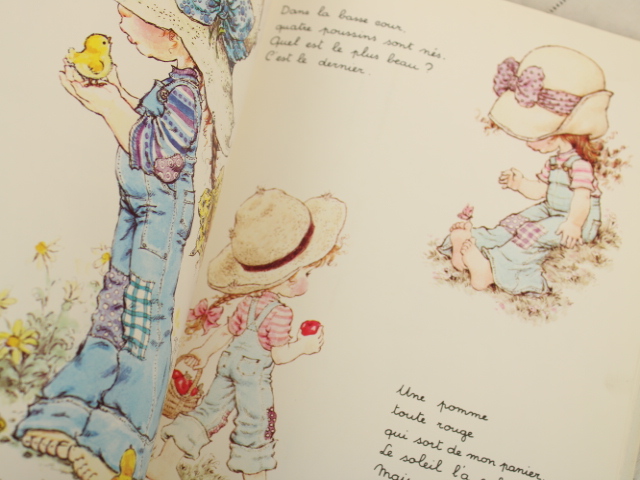 Dans la basse cour
quatre poussins sont nés.
Quel est le plus beau ?
C'est le dernier.
Une pomme
toute rouge
qui sort de mon panier
Le soleil l'a